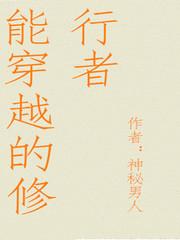 能穿越的修
行者
作者：神秘男人